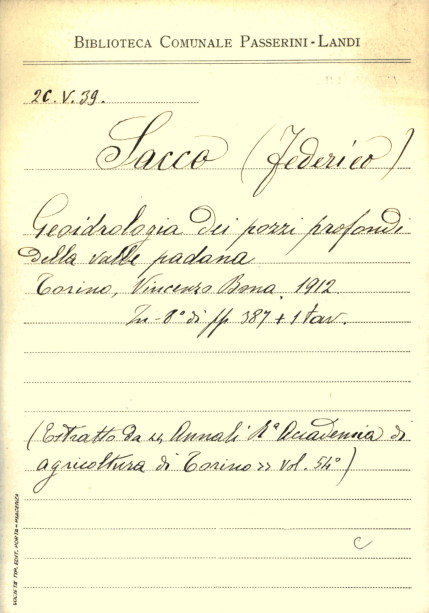 BIBLIOTECA COMUNALE PASSERINI-LANDI
2C. V. 39.
Sacco (Federico)
Geoidrologia dei pozzi profondi
della valle padana
Torino, Vincenzo Bona, 1912
In-8° di pp 387 + 1 tav.
(Estratto da << Annali Rª Accademia di
agricoltura di Torino >> vol. 54°)
C